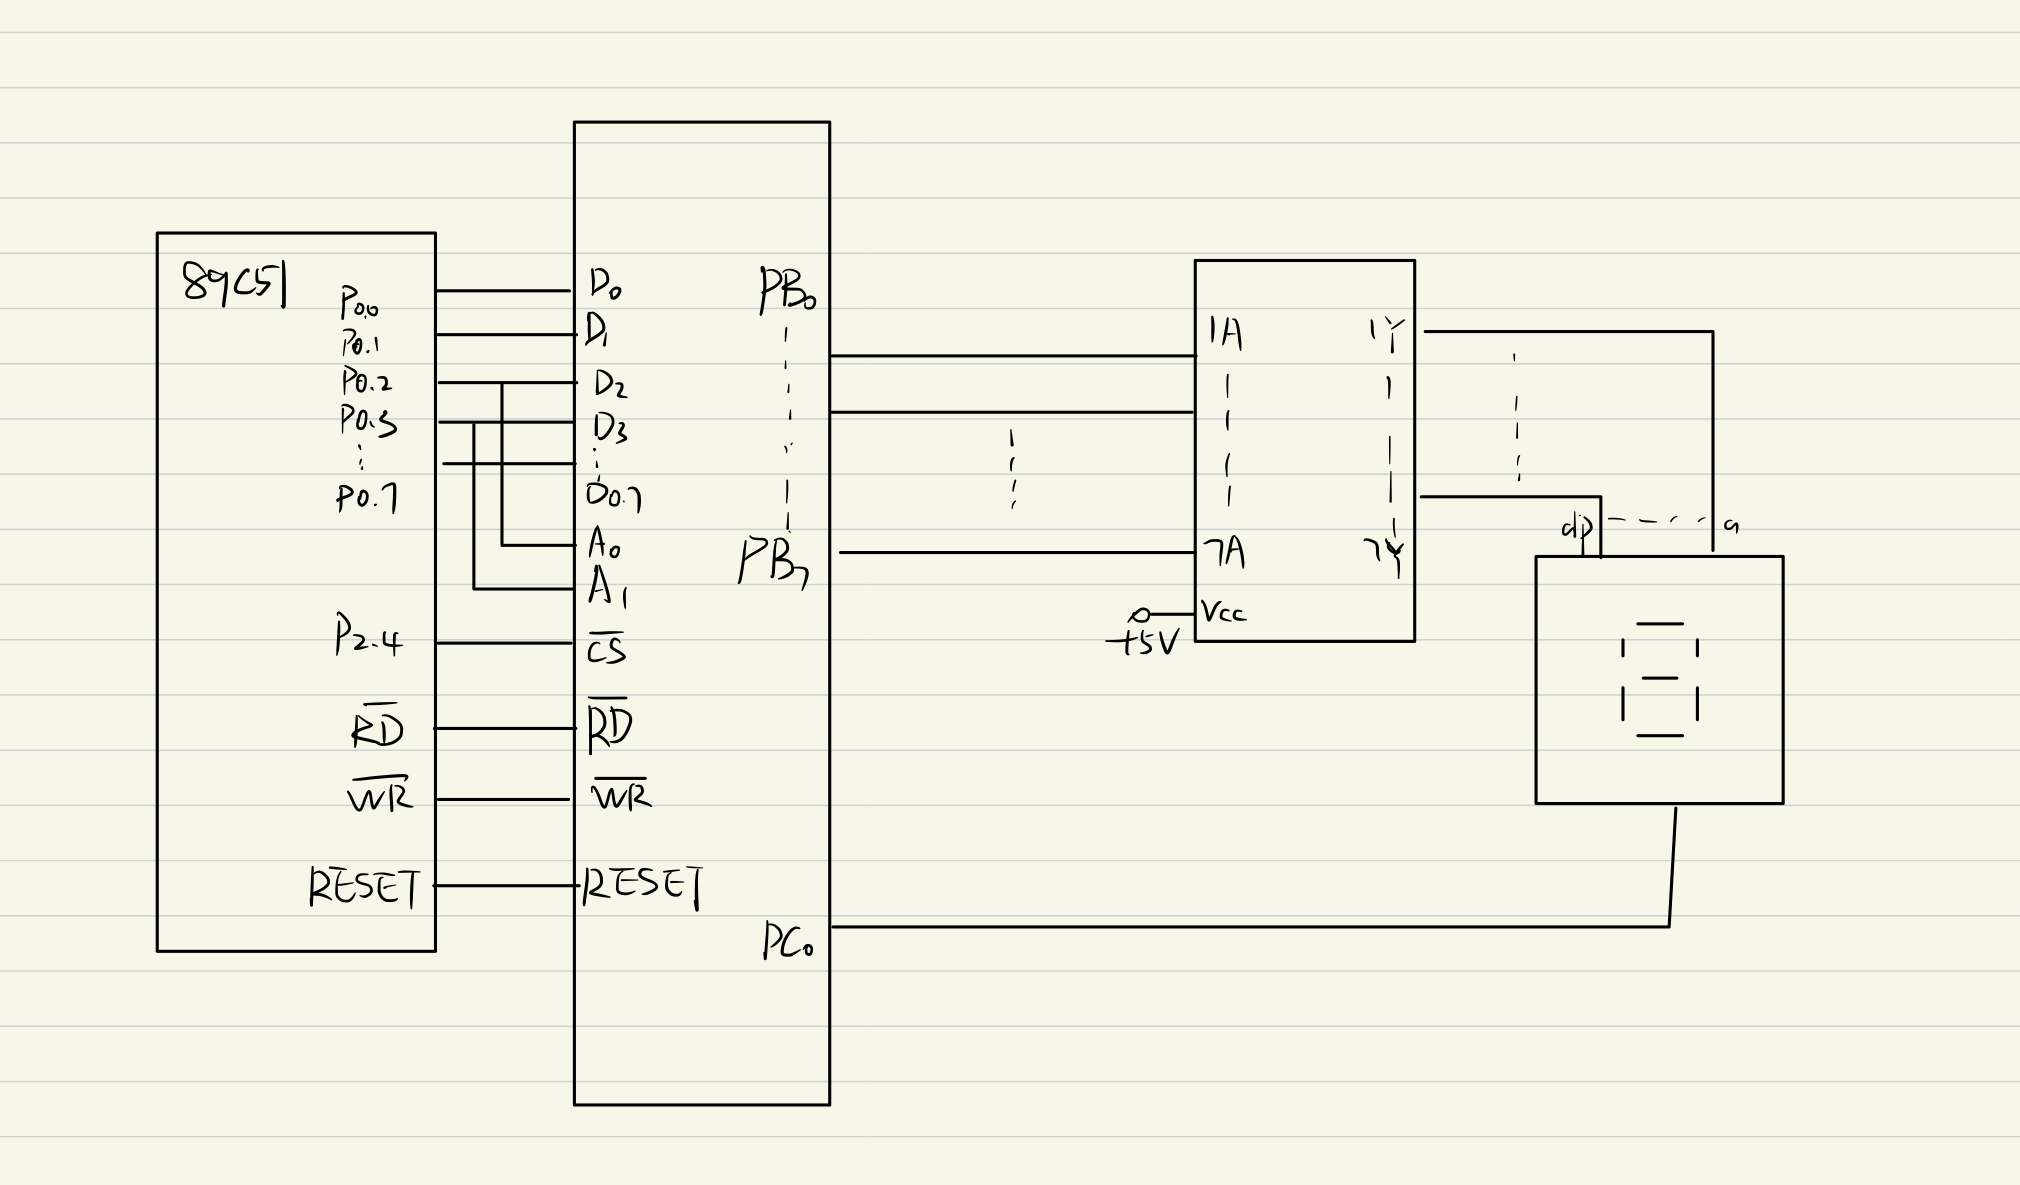 89C51
P0.0
P0.1
P0.2
P0.3
P0.7
P2.4
RD
WR
RESET
D0
D1
D2
D3
D0.7
A0
A1
CS
RD
WR
RESET
PB0
PB7
PC0
1A
7A
Vcc
+5V
1Y
7Y
dp
a